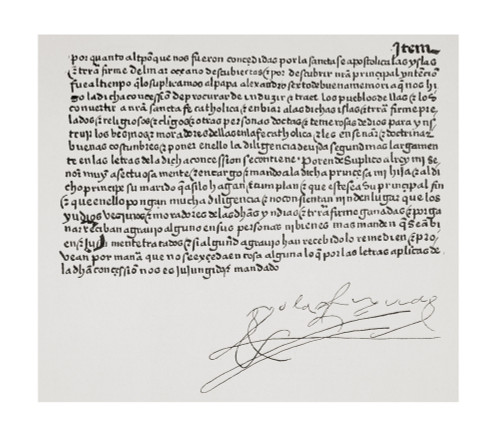 Item
por quanto al tpõ que nos fueron concedidas por la sancta se apostolica las yslas
e trrã firme del mar oceano descubiertas e por descubrir nrã principal yntenciõ
fue al tienpo q̃ lo suplicamos al papa alexandro sexto de buena memoria q̃ nos hi
zo la dicha concessiõ de procurar de induzir e traer los pueblos dellas e los
convertir a nrã sancta fe catholica e enbiar a las dichas islas e trrã firme pre
lados e religiosos e clerigos e otras personas doctas e temerosas de dios para yns
truir los vezinos e moradores dellas en la fe catholica e les ensenar e doctrinar
buenas costunbres e poner en ello la diligencia devida segund mas largamen
te en las letras de la dicha concession se contiene. Por ende suplico al rey mi se
nor muy afectuosamente e encargo e mando a la dicha princesa mi hija e al di
cho principe su marido q̃ asi lo hagan e cunplan e que este sea su principal fin
e que en ello pongan mucha diligencia e no consientan ni den lugar que los
yndios vezinos e moradores de las dhãs yndias e trrã firme ganadas e por ga
nar reciban agravio alguno en sus personas ni bienes mas manden que sean bi
en e justamente tratados e si algund agravio han recebido lo remedien e pro
vean por manera que no se exceda en cosa alguna lo q̃ por las letras aplicas de
la dhã concession nos es iniungido e mandado
yo la Reyna